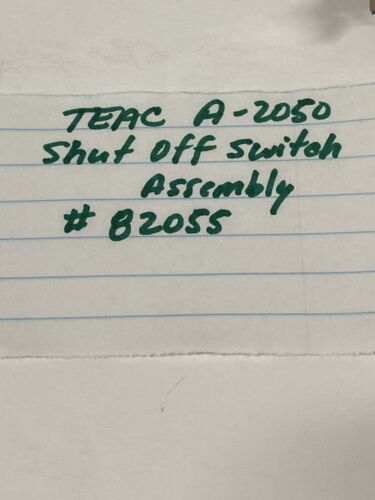 TEAC A-2050
Shut Off Switch
Assembly
# 82055